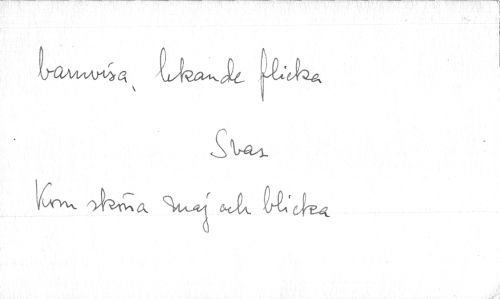 barnvisa, lekande flicka
Svar
Kom sköna maj och blicka